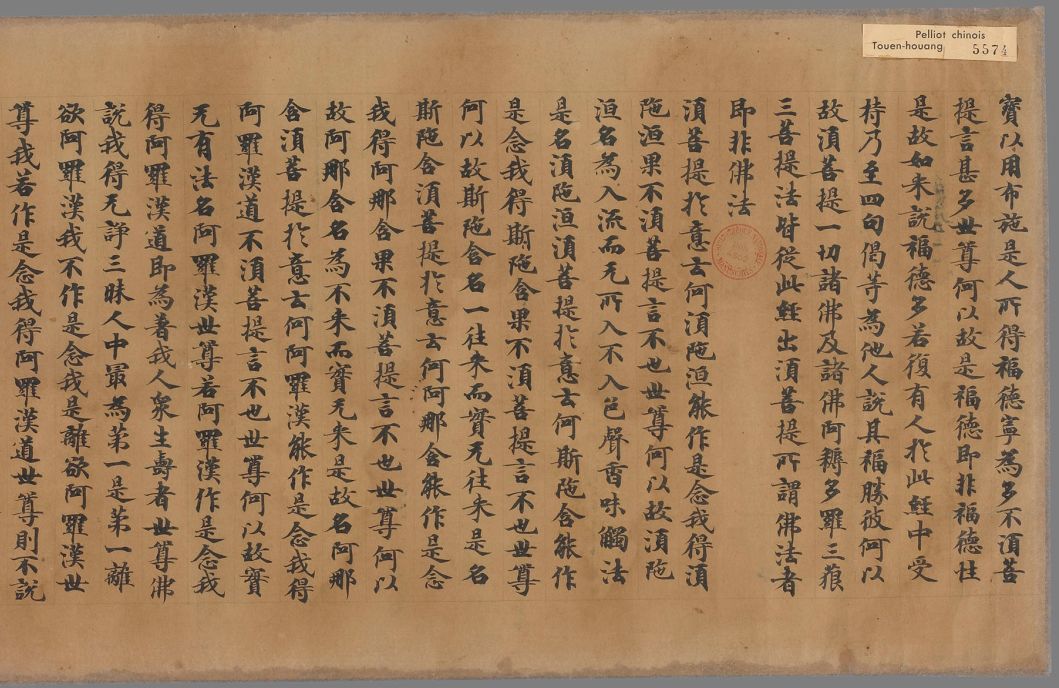 Pelliot chinois
Touen-houang 5574
寳以用布施是人所得福德寧為多不湏菩
提言甚多世尊何以故是福德即非福德性
是故如来說福德多若復有人於此經中受
持乃至四句偈等為他人說其福勝彼何以
故湏菩提一切諸佛及諸佛阿耨多羅三藐
三菩提法皆従此經出湏菩提所謂佛法者
即非佛法
湏菩提於意云何湏陁洹能作是念我得湏
陁洹果不湏菩提言不也世尊何以故湏陁
洹名為入流而无所入不入色聲香味觸法
是名湏陁洹湏菩提於意云何斯陁含能作
是念我得斯陁含果不湏菩提言不也世尊
何以故斯陁含名一往来而實无往来是名
斯陁含湏菩提於意云何阿那含能作是念
我得阿那含果不湏菩提言不也世尊何以
故阿那含名為不来而實无来是故名阿那
含湏菩提於意云何阿羅漢能作是念我得
阿羅漢道不湏菩提言不也世尊何以故實
无有法名阿羅漢世尊若阿羅漢作是念我
得阿羅漢道即為著我人衆生壽者世尊佛
說我得无諍三昧人中㝡為第一是第一離
欲阿羅漢我不作是念我是離欲阿羅漢世
尊我若作是念我得阿羅漢道世尊則不說